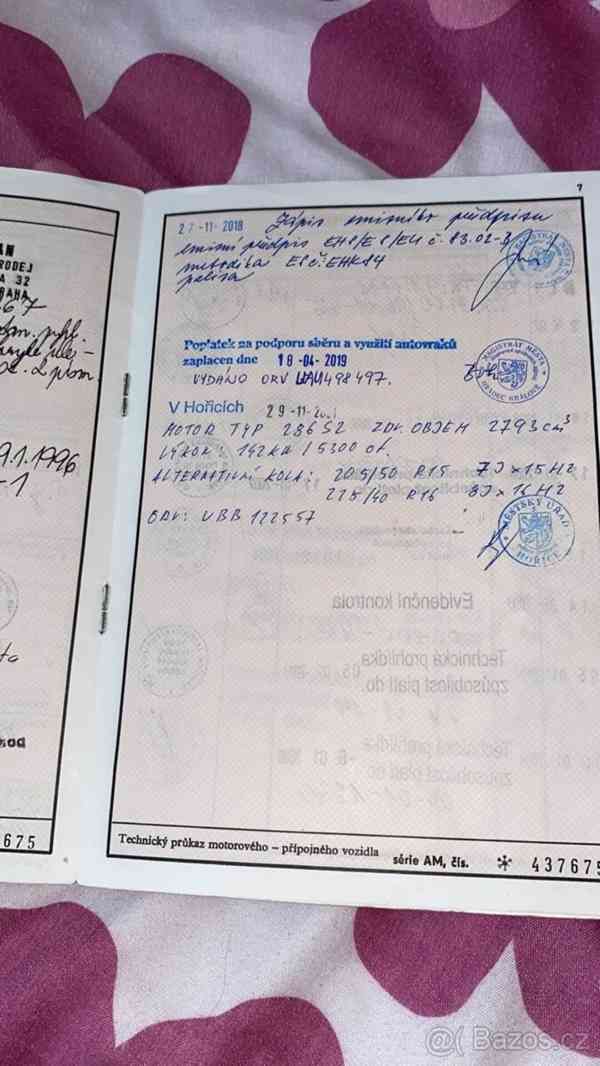 AN
RODEJ
A 32
RAHA
67
9.1.1996
-1
675
7
27 -11- 2018 Zápis emisního předpisu
emisní předpis EHS/ES/EU č. 83.02-3
metodika ES č. EHK 84
paliva
MAGISTRÁT MĚSTA
Poplatek na podporu sběru a využití autovraků
zaplacen dne 18 -04- 2019
VYDÁNO ORV UAU498497.
MAGISTRÁT MĚSTA
HRADEC KRÁLOVÉ
V Hořicích 29 -11-
MOTOR TYP 286S2 ZDV. OBJEM 2793 cm3
VÝKON: 142 KW / 5300 ot.
ALTERNATIVNÍ KOLA: 205/50 R15 7J x 15 H2
225/40 R16 8J x 16 H2
ORV: UBB 122557
MĚSTSKÝ ÚŘAD
HOŘICE
Evidenční kontrola
Technická prohlídka
způsobilost platí do.
Technická prohlídka
způsobilost platí do
Technický průkaz motorového – přípojného vozidla
série AM, čís. 437675
@( Bazos.cz